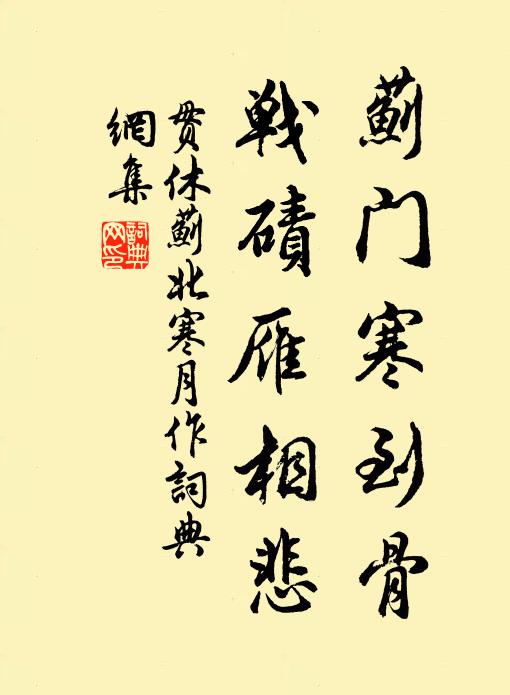 薊门寒到骨
戦磧雁相悲
贯休薊北寒月作詞典
網集
詞典
网印